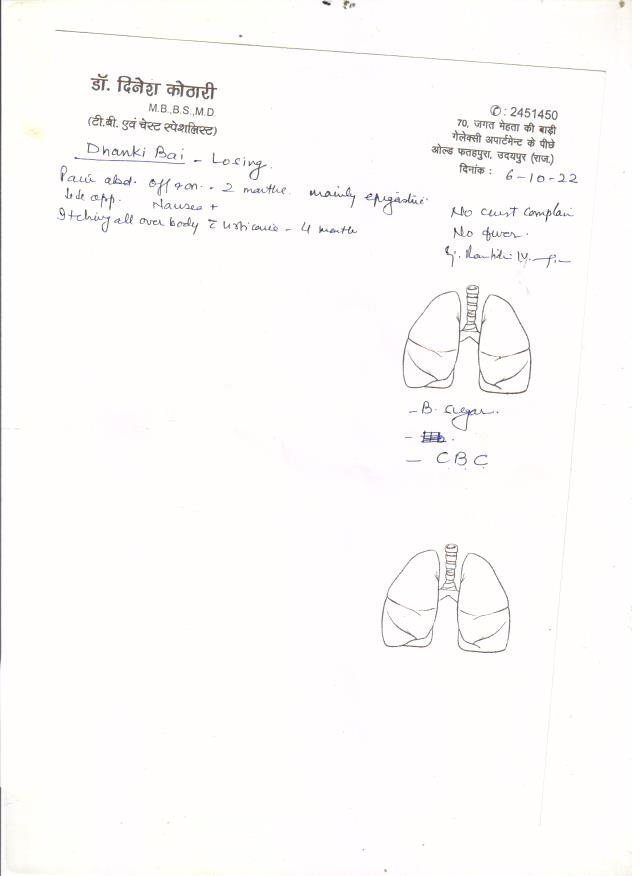 डॉ. दिनेश कोठारी
M.B.,B.S.,M.D.
(टी.बी. एवं चेस्ट स्पेशलिस्ट)
✆ : 2451450
70, जगत मेहता की बाड़ी
गेलेक्सी अपार्टमेन्ट के पीछे
ओल्ड फतहपुरा, उदयपुर (राज.)
दिनांक : 6-10-22
Dhanki Bai - Losing.
Pain abd. off & on - 2 months. mainly epigastric
app. Nausea +
Itching all over body c̄ urticaria - 4 months
No chest complain
No fever.
- B. sugar.
- CBC